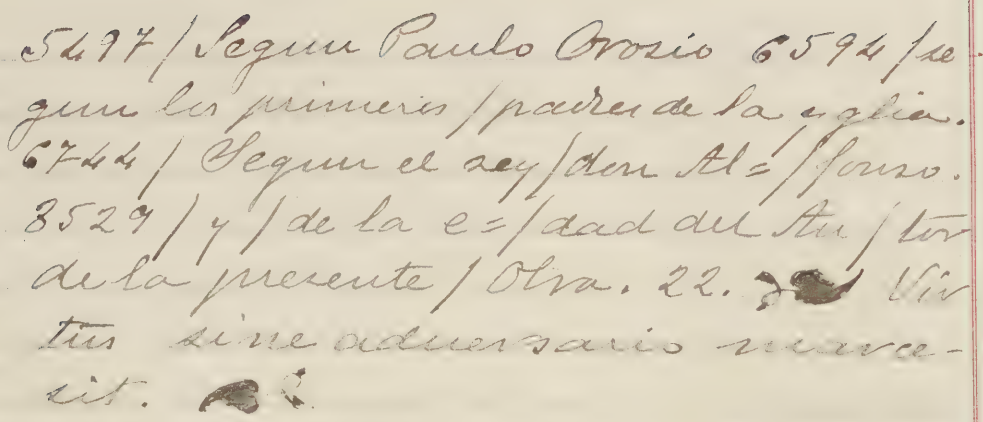 5497 / Segun Paulo Orosio 6594 / se
gun los primeros / padres de la yglia.
6744 / Segun el rey / don Al= / fonso.
8529 / y / de la e= / dad del Au / tor
de la presente / Obra. 22. Vir
tus sine aduersario marce-
sit.